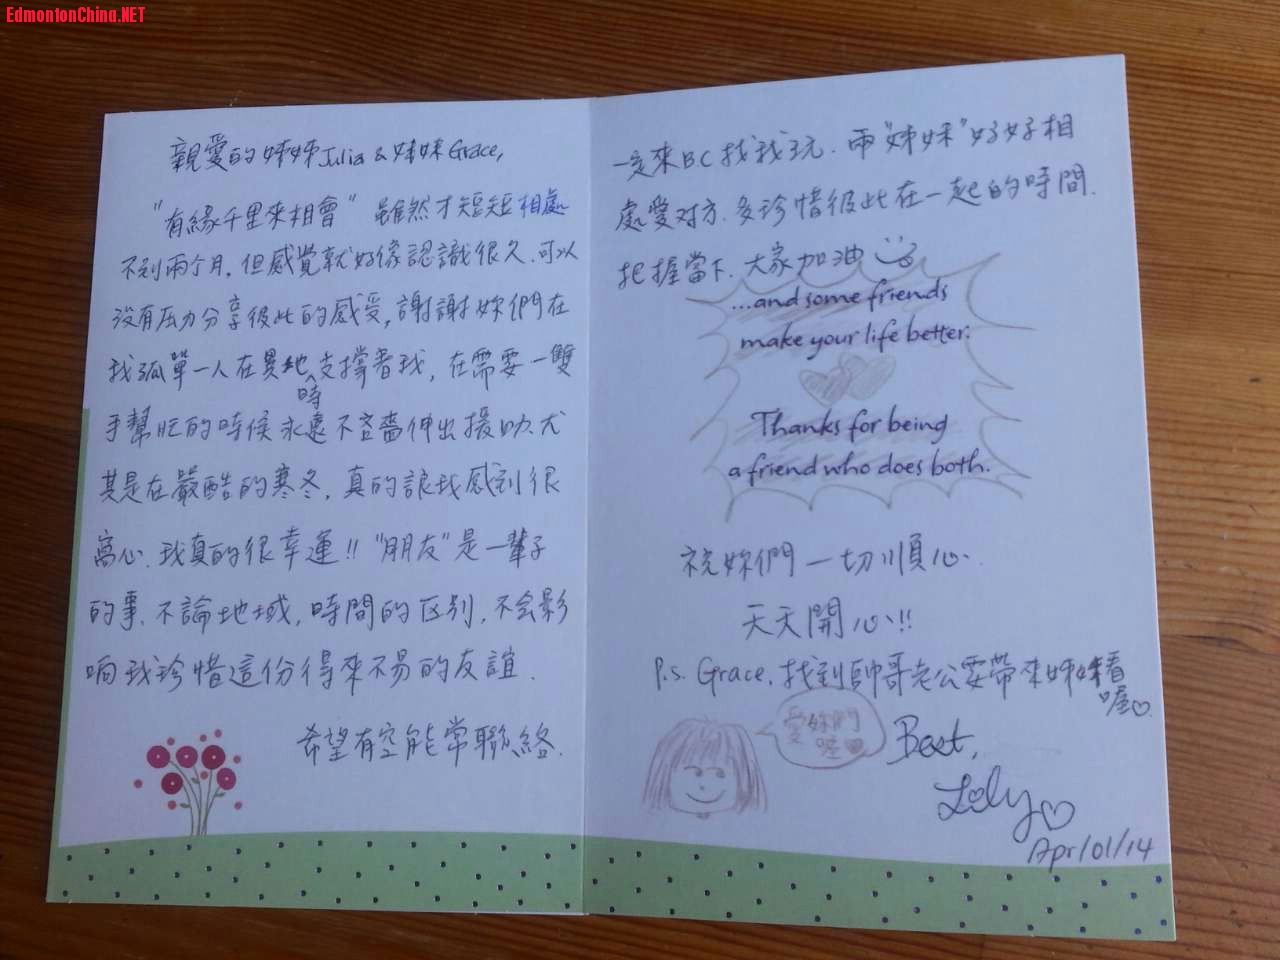 EdmontonChina.NET
親愛的姊姊Julia & 妹妹Grace,
"有緣千里來相會" 雖然才短短相處
不到兩个月, 但感覺就好像認識很久. 可以
沒有压力分享彼此的感受, 謝謝妳們在
我孤單一人在異地時支撐着我, 在需要一雙
手幫忙的時候永遠不吝嗇伸出援助. 尤
其是在嚴酷的寒冬, 真的讓我感到很
窩心. 我真的很幸運!! "朋友"是一輩子
的事. 不論地域, 時間的区别, 不会影
响我珍惜這份得來不易的友誼.
希望有空能常聯絡.
一定來BC找我玩. 兩"姊妹"好好相
處愛对方. 多珍惜彼此在一起的時間.
把握當下. 大家加油
...and some friends
make your life better.
Thanks for being
a friend who does both.
祝妳們一切順心.
天天開心!!
P.S. Grace, 找到帥哥老公要帶來姊姊看
喔♡
愛妳們
喔♥
Best,
Lily♡
Apr/01/14